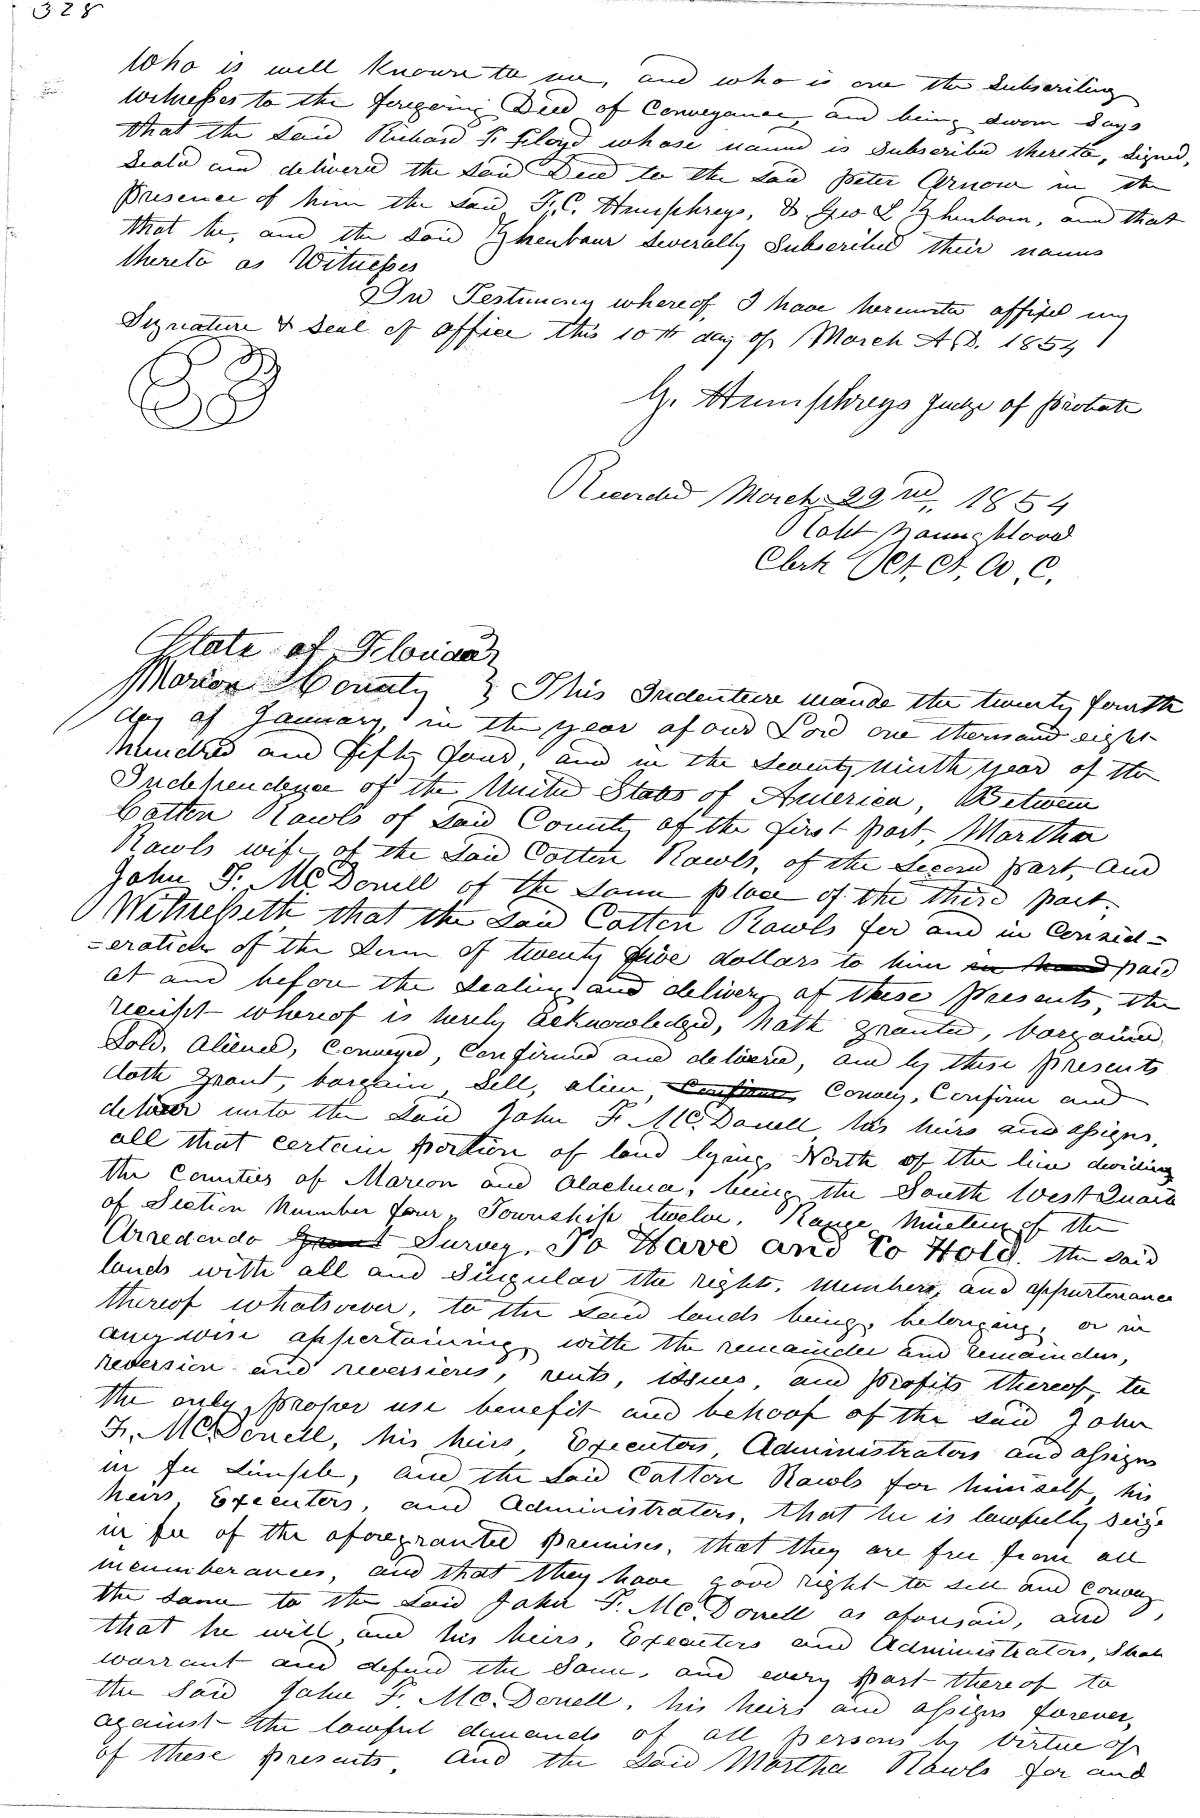 328
Who is well known to me, and who is one the Subscribing
witnesses to the foregoing Deed of Conveyance, and being sworn Says
that the said Richard F. Floyd whose name is Subscribed thereto, Signed,
Seald and delivered the said Deed to the said Peter Arnow in the
presence of him the said F. C. Humphreys, & Geo L and that
that he, and the said severally Subscribed their names
thereto as Witnesses
In Testimony whereof, I have hereunto affixed my
Signature & Seal of office this 10th day of March A.D. 1854
G. Humphreys Judge of Probate
Recorded March 22nd, 1854
Robt Youngblood
Clerk Ct. Ct. C.
State of Florida
Marion County } This Indenture maade the twenty fourth
day of January, in the year of our Lord one thousand eight
hundred and fifty four, and in the seventy ninth year of the
Independence of the United States of America, Between
Cotten Rawls of said County of the first part, Martha
Rawls wife of the said Cotten Rawls, of the Second part, and
John F. McDonell of the same place of the third part;
Witnesseth, that the said Cotten Rawls for and in Consid=
=eration of the sum of twenty five dollars to him in hand paid
at and before the sealing and delivery of these presents, the
receipt whereof is hereby acknowledged, hath granted, bargained,
Sold, aliened, Conveyed, Confirmed and delivered, and by these presents
doth grant, bargain, Sell, alien, Confirm, Convey, Confirm and
deliver unto the said John F. McDonell, his heirs and assigns,
all that certain portion of land lying North of the line dividing
the Counties of Marion and Alachua, being the South West Quart
of Section Number four, Township twelve, Range Nineteen of the
Arredondo Grant Survey, To Have and to Hold, the said
lands with all and singular the rights, members, and appurtenance
thereof whatsoever, to the said lands being, belonging, or in
anywise appertaining, with the remainder and remainders,
reversion and reversions, rents, issues, and profits thereof, to
the only proper use benefit and behoof of the said John
F. McDonell, his heirs, Executors, Administrators and assigns
in fee simple, and the said Cotten Rawls for himself, his
heirs, Executors, and Administrators, that he is lawfully seize
in fee of the aforegranted premises, that they are free from all
incumberances, and that they have good right to sell and convey
the same to the said John F. McDonell as aforesaid, and
that he will, and his heirs, Executors and Administrators, shall
warrant and defend the same, and every part thereof to
the said John F. McDonell, his heirs and assigns forever,
against the lawful demands of all persons by virtue of
of these presents, And the said Martha Rawls for and